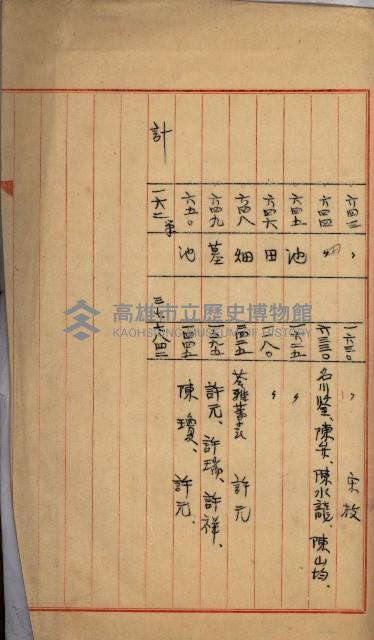 六四三 〃 一六三〇 〃 宋枝
六四四 〃 畑 六三三〇 名川堅、陳矣、陳水龍、陳山均、
六四五 池 六二五 〃
六四六 田 一八〇 〃
六四八 畑 三四二五 苓雅寮 許元
六四九 墓 一九五 許元、許瑞、許祥、
六五〇 池 一四四五 陳瓊、許元、
計 一六二筆 三六六八四二
高雄市立歷史博物館
KAOHSIUNG MUSEUM OF HISTORY